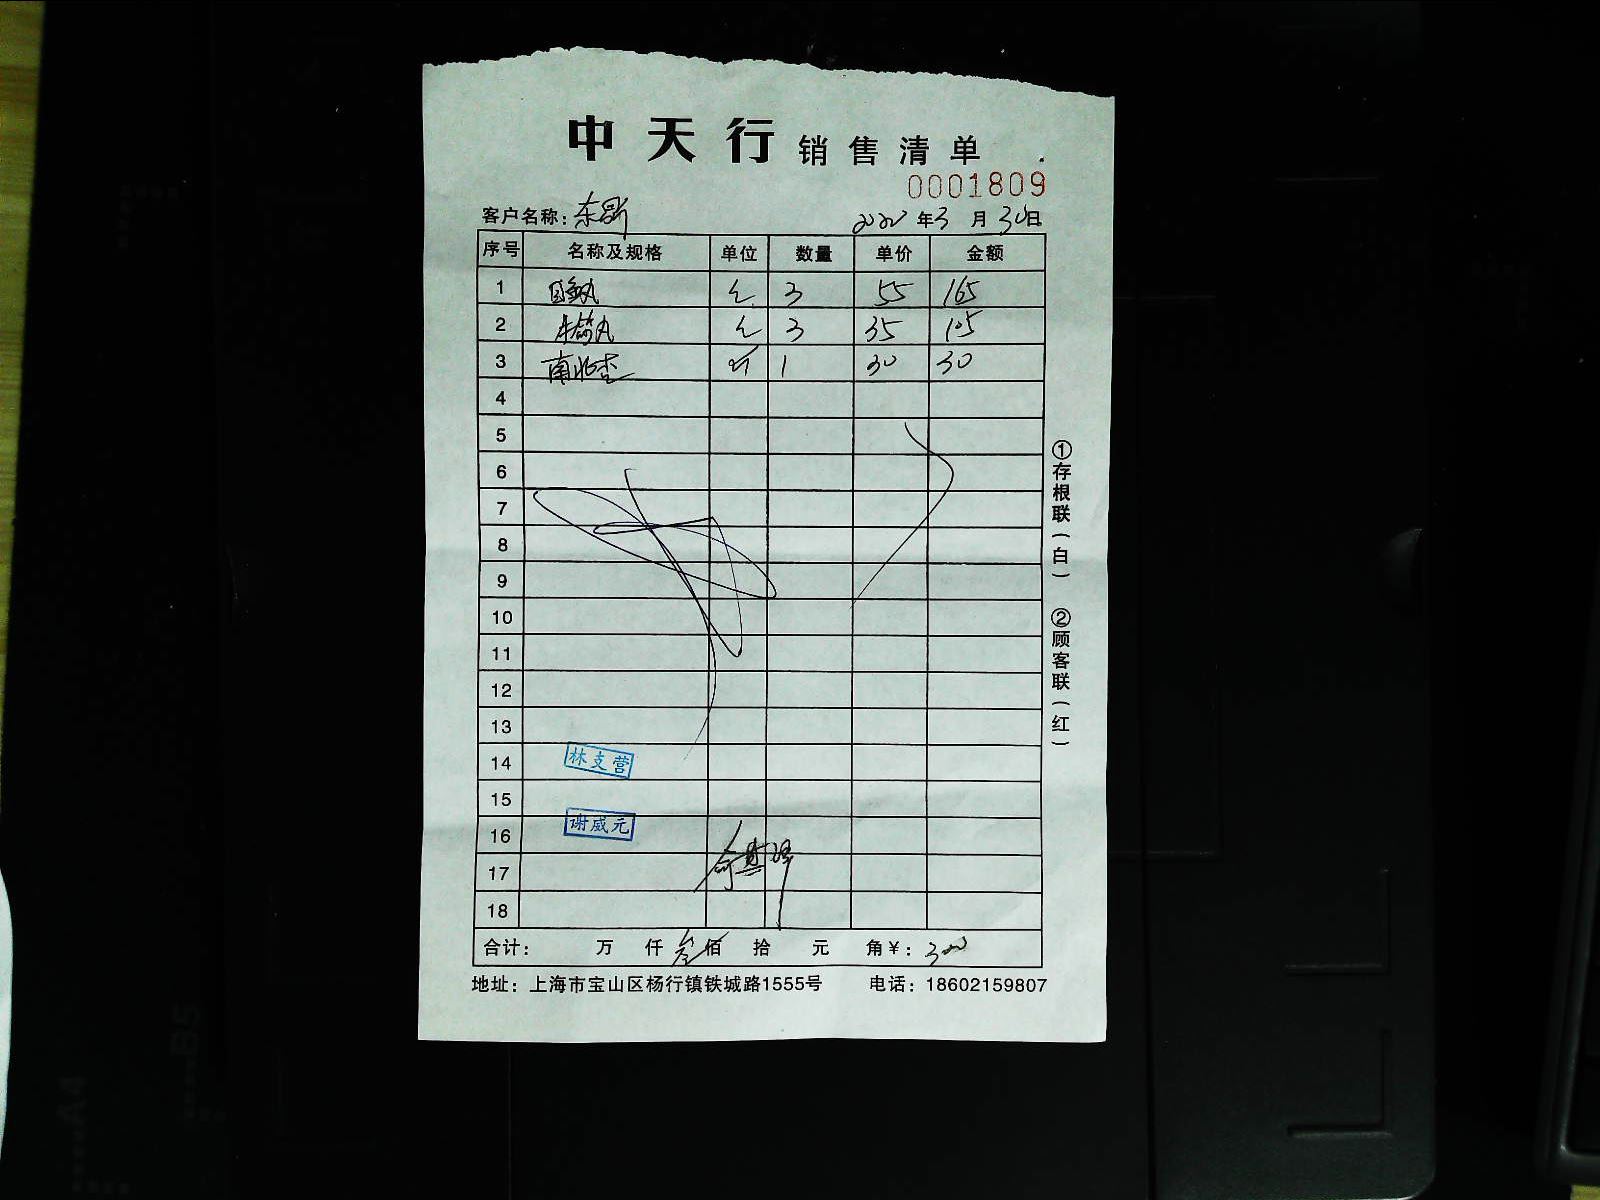 中天行 销售清单
0001809
客户名称：东哥 年3月30日
序号 名称及规格 单位 数量 单价 金额
1 3 55 165
2 丸 3 35 105
3 南北杏 1 30 30
4
5
6
7
8
9
10
11
12
13
14 林支营
15
16 谢威元
17
18
合计： 万 仟 叁佰 拾 元 角￥：300
地址：上海市宝山区杨行镇铁城路1555号 电话：18602159807
①存根联(白) ②顾客联(红)
A4
B5